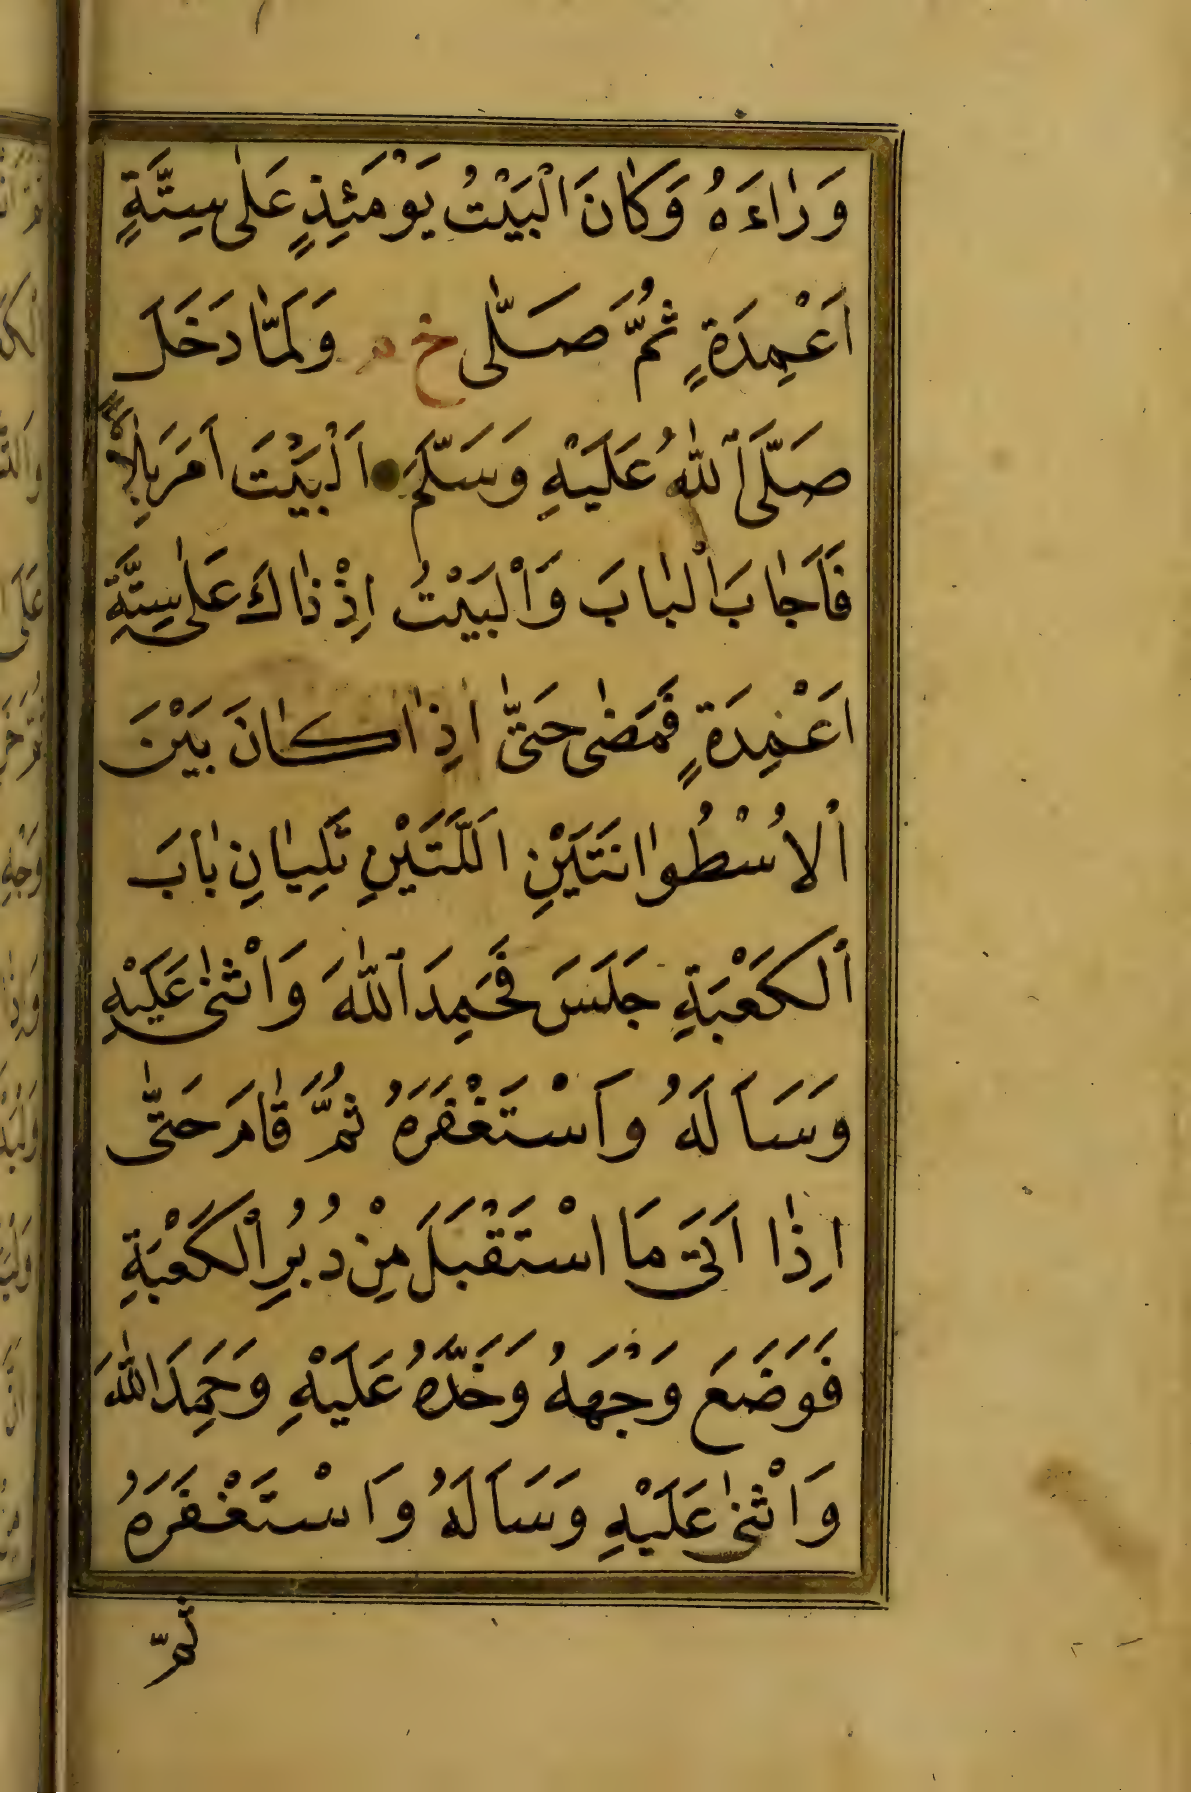 وَرٰاءَهُ وَكٰانَ الْبَيْتُ يَوْمَئِذٍ عَلٰى سِتَّةِ
اَعْمِدَةٍ ثُمَّ صَلّٰى خ م وَلَمّٰا دَخَلَ
صَلَّى اللّٰهُ عَلَيْهِ وَسَلَّمَ اَلْبَيْتَ اَمَرَ بِلاٰلاً
فَاَجٰابَ الْبٰابَ وَالْبَيْتُ اِذْ ذٰاكَ عَلٰى سِتَّةِ
اَعْمِدَةٍ فَمَضٰى حَتّٰى اِذٰا كٰانَ بَيْنَ
الْاُسْطُوٰانَتَيْنِ اللَّتَيْنِ تَلِيٰانِ بٰابَ
الْكَعْبَةِ جَلَسَ فَحَمِدَ اللّٰهَ وَاَثْنٰى عَلَيْهِ
وَسَاَلَهُ وَاسْتَغْفَرَهُ ثُمَّ قٰامَ حَتّٰى
اِذٰا اَتَى مَا اسْتَقْبَلَ مِنْ دُبُرِ الْكَعْبَةِ
فَوَضَعَ وَجْهَهُ وَخَدَّهُ عَلَيْهِ وَحَمِدَ اللّٰهَ
وَاَثْنٰى عَلَيْهِ وَسَاَلَهُ وَاسْتَغْفَرَهُ
ثمّ